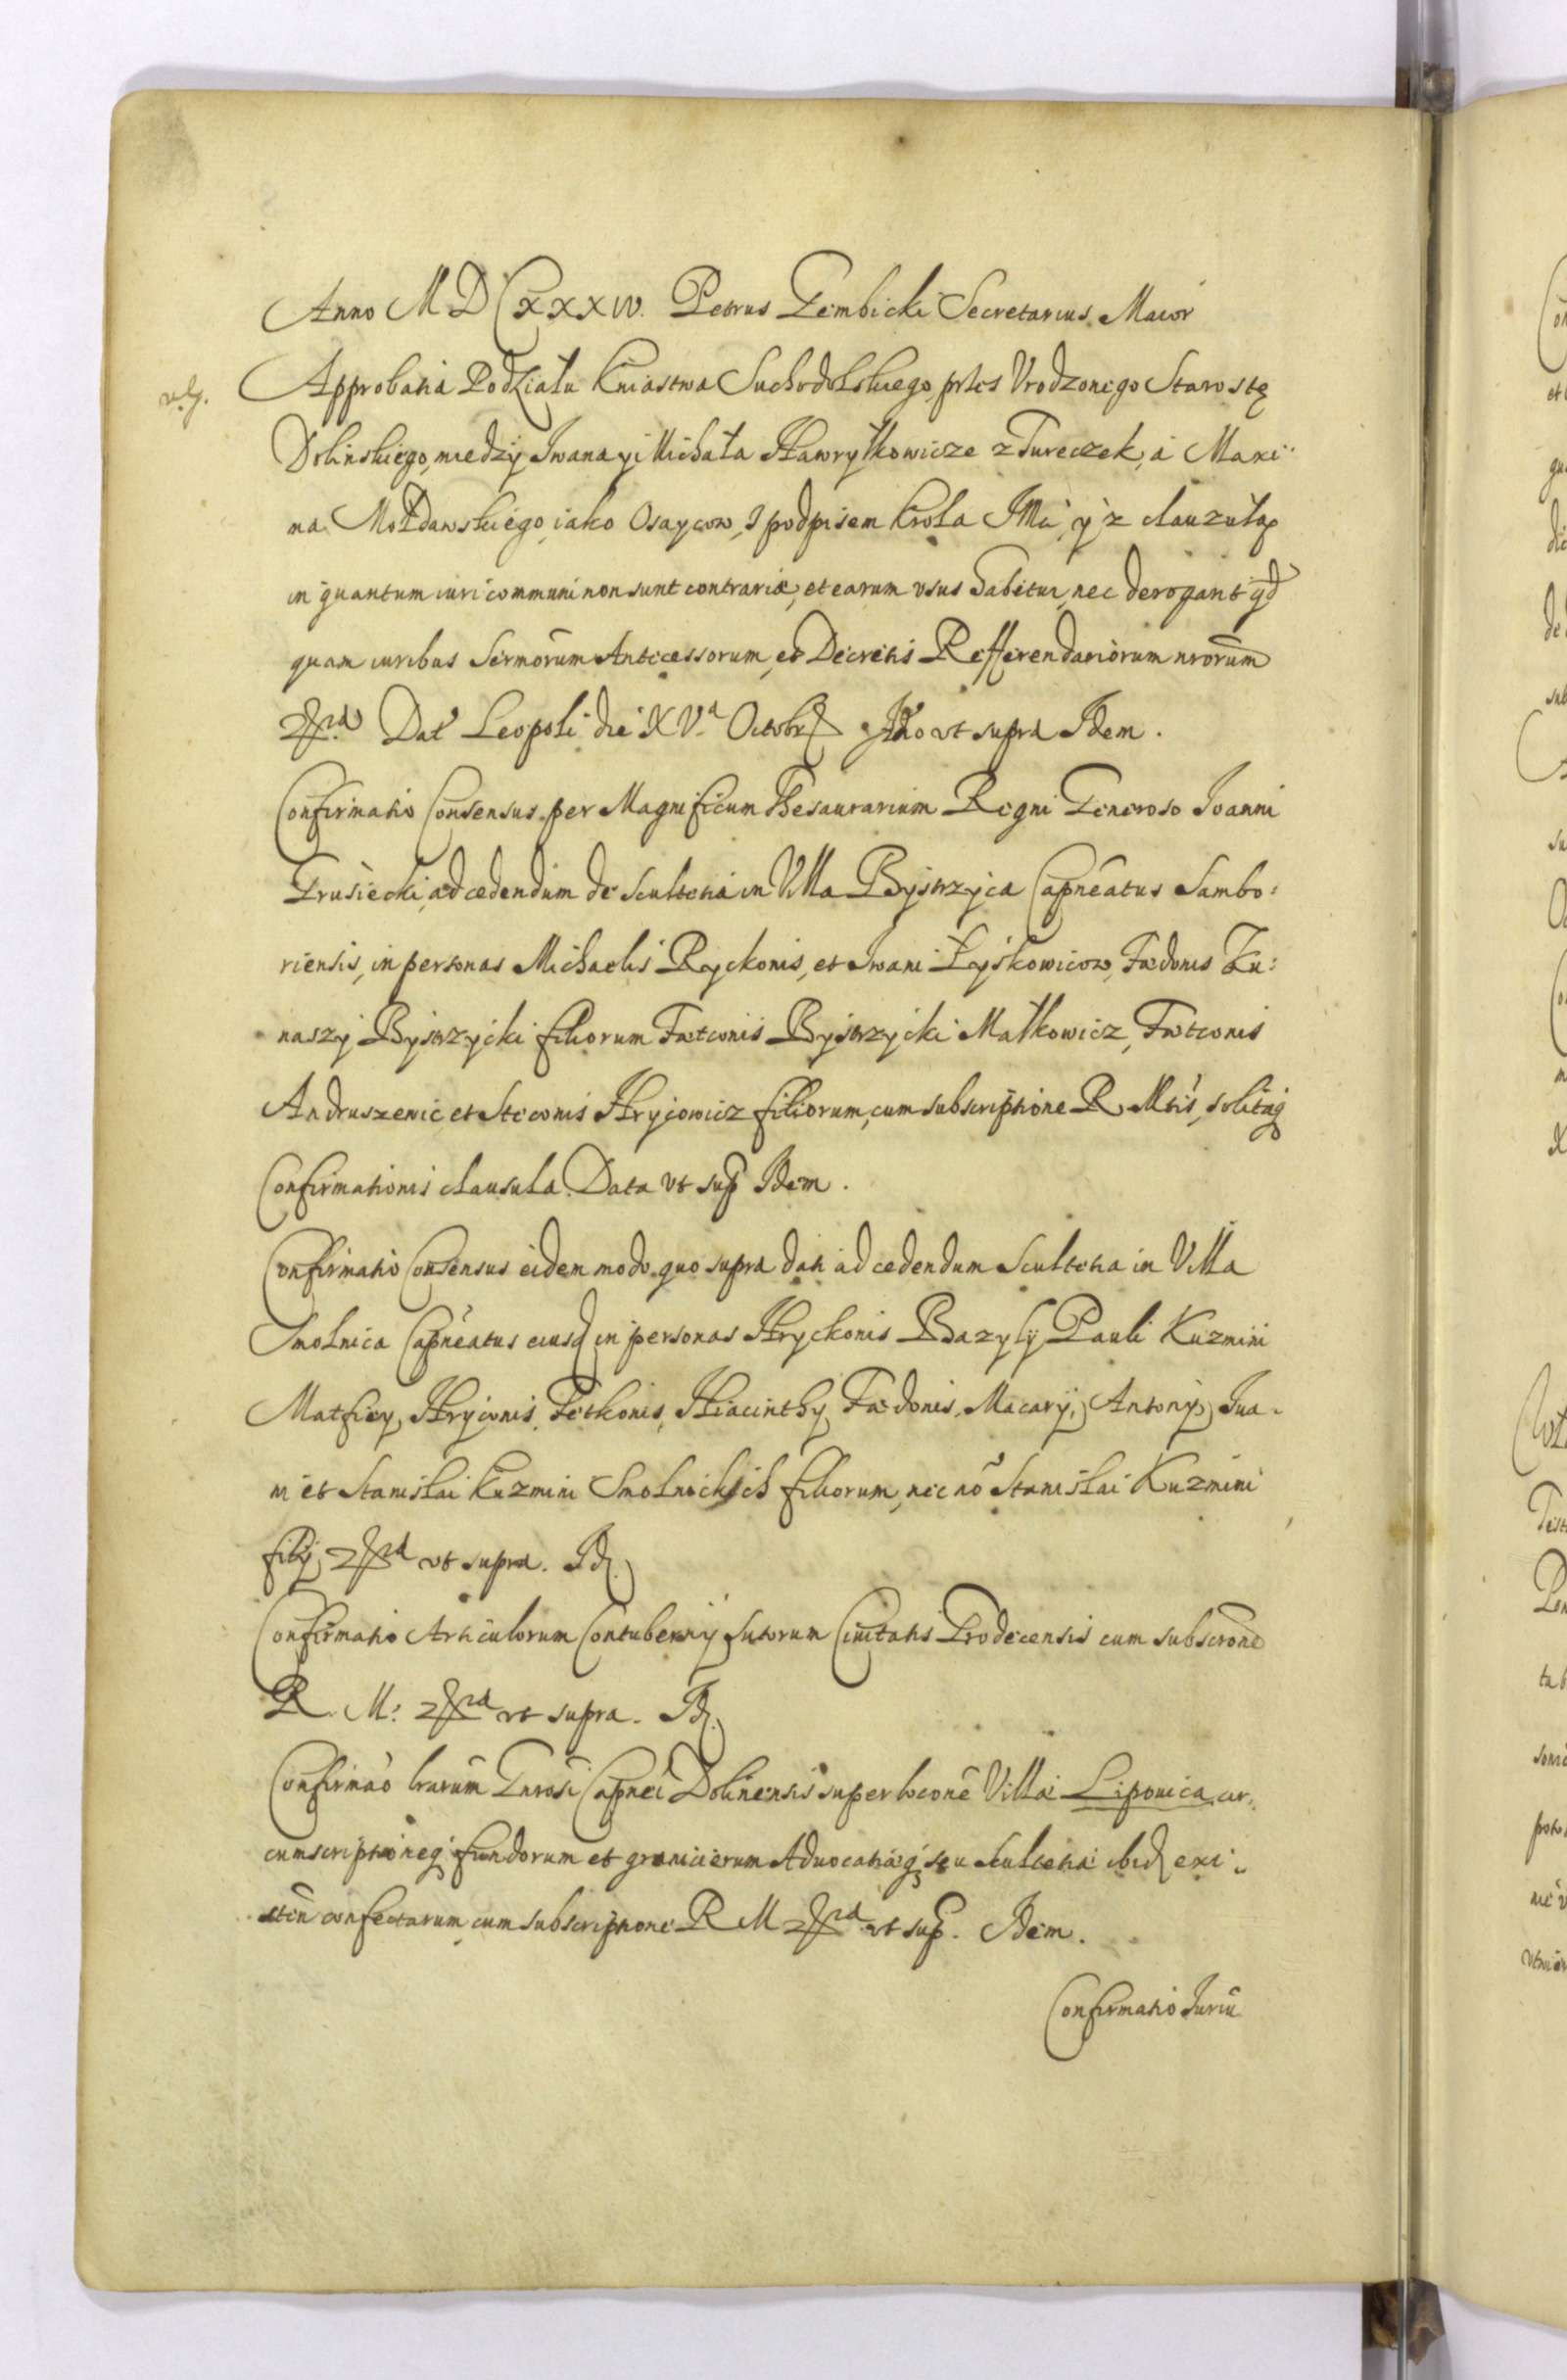 Anno MDCXXXIV. Petrus Gembicki Secretarius Maior
Approbatia Podziału Kniastwa Suchodolskiego, przes Vrodzonego Starostę
Dolinskiego, miedzÿ Jwana yi Michała Hawryłkowicze z Tureczek, a Maxi¨
ma Mołdawskiego, iako Osaycow, z podpisem Krola JMći, ÿ z clauzułą
in quantum iuri communi non sunt contrariæ, et earum vsus habetur, nec derogant
quam iuribus Sermōrum Antecessorum, et Decretis Refferendariorum nrōrum
Dat Leopoli die XV.a Octobr Ao vt supra Idem.
Confirmatio Consensus per Magnificum Thesaurarium Regni Generoso Joanni
Grusiecki, ad cedendum de Scultetia in Villa Bystrzyca Capneatus Sambo:
riensis, in personas Michaelis Ryckonis, et Jwani Łyskowicow, Fædonis Ku:
naszy Bystrzycki filiorum Fætconis Bystrzycki Małkowicz, Fætconis
Andruszewic et Steconis Hrycowicz filiorum, cum subscriptione R Mtis, solitaq
Confirmationis clausula. Data vt sup Idem.
Confirmatio Consensus eidem modo quo supra dati ad cedendum Scultetia in Villa
Smolnica Capneatus eiusd in personas Hryckonis Bazylÿ Pauli Kuzmini
Matfiey, Hryconis, Petkonis, Hiacinthy, Fædonis, Macarÿ, Antonÿ, Jua-
ni et Stanislai Kuzmini Smolnickich filiorum, nec nō Stanislai Kuzmini
filÿ vt supra. Id.
Confirmatio Articulorum Contubernÿ Sutorum Ciuitatis Grodecensis cum subscrone
R. M: vt supra. Id.
Confirmaō lrarūm Gnrōsi Capnei Dolinensis super locōne Villæ Lipouica, cir,,
cumscriptioneq fundorum et granicierum Aduocatiæq seu Scultetiæ ibid exi,,
sten confectarum cum subscriptione R M vt sup. Idem.
Confirmatio Juriū